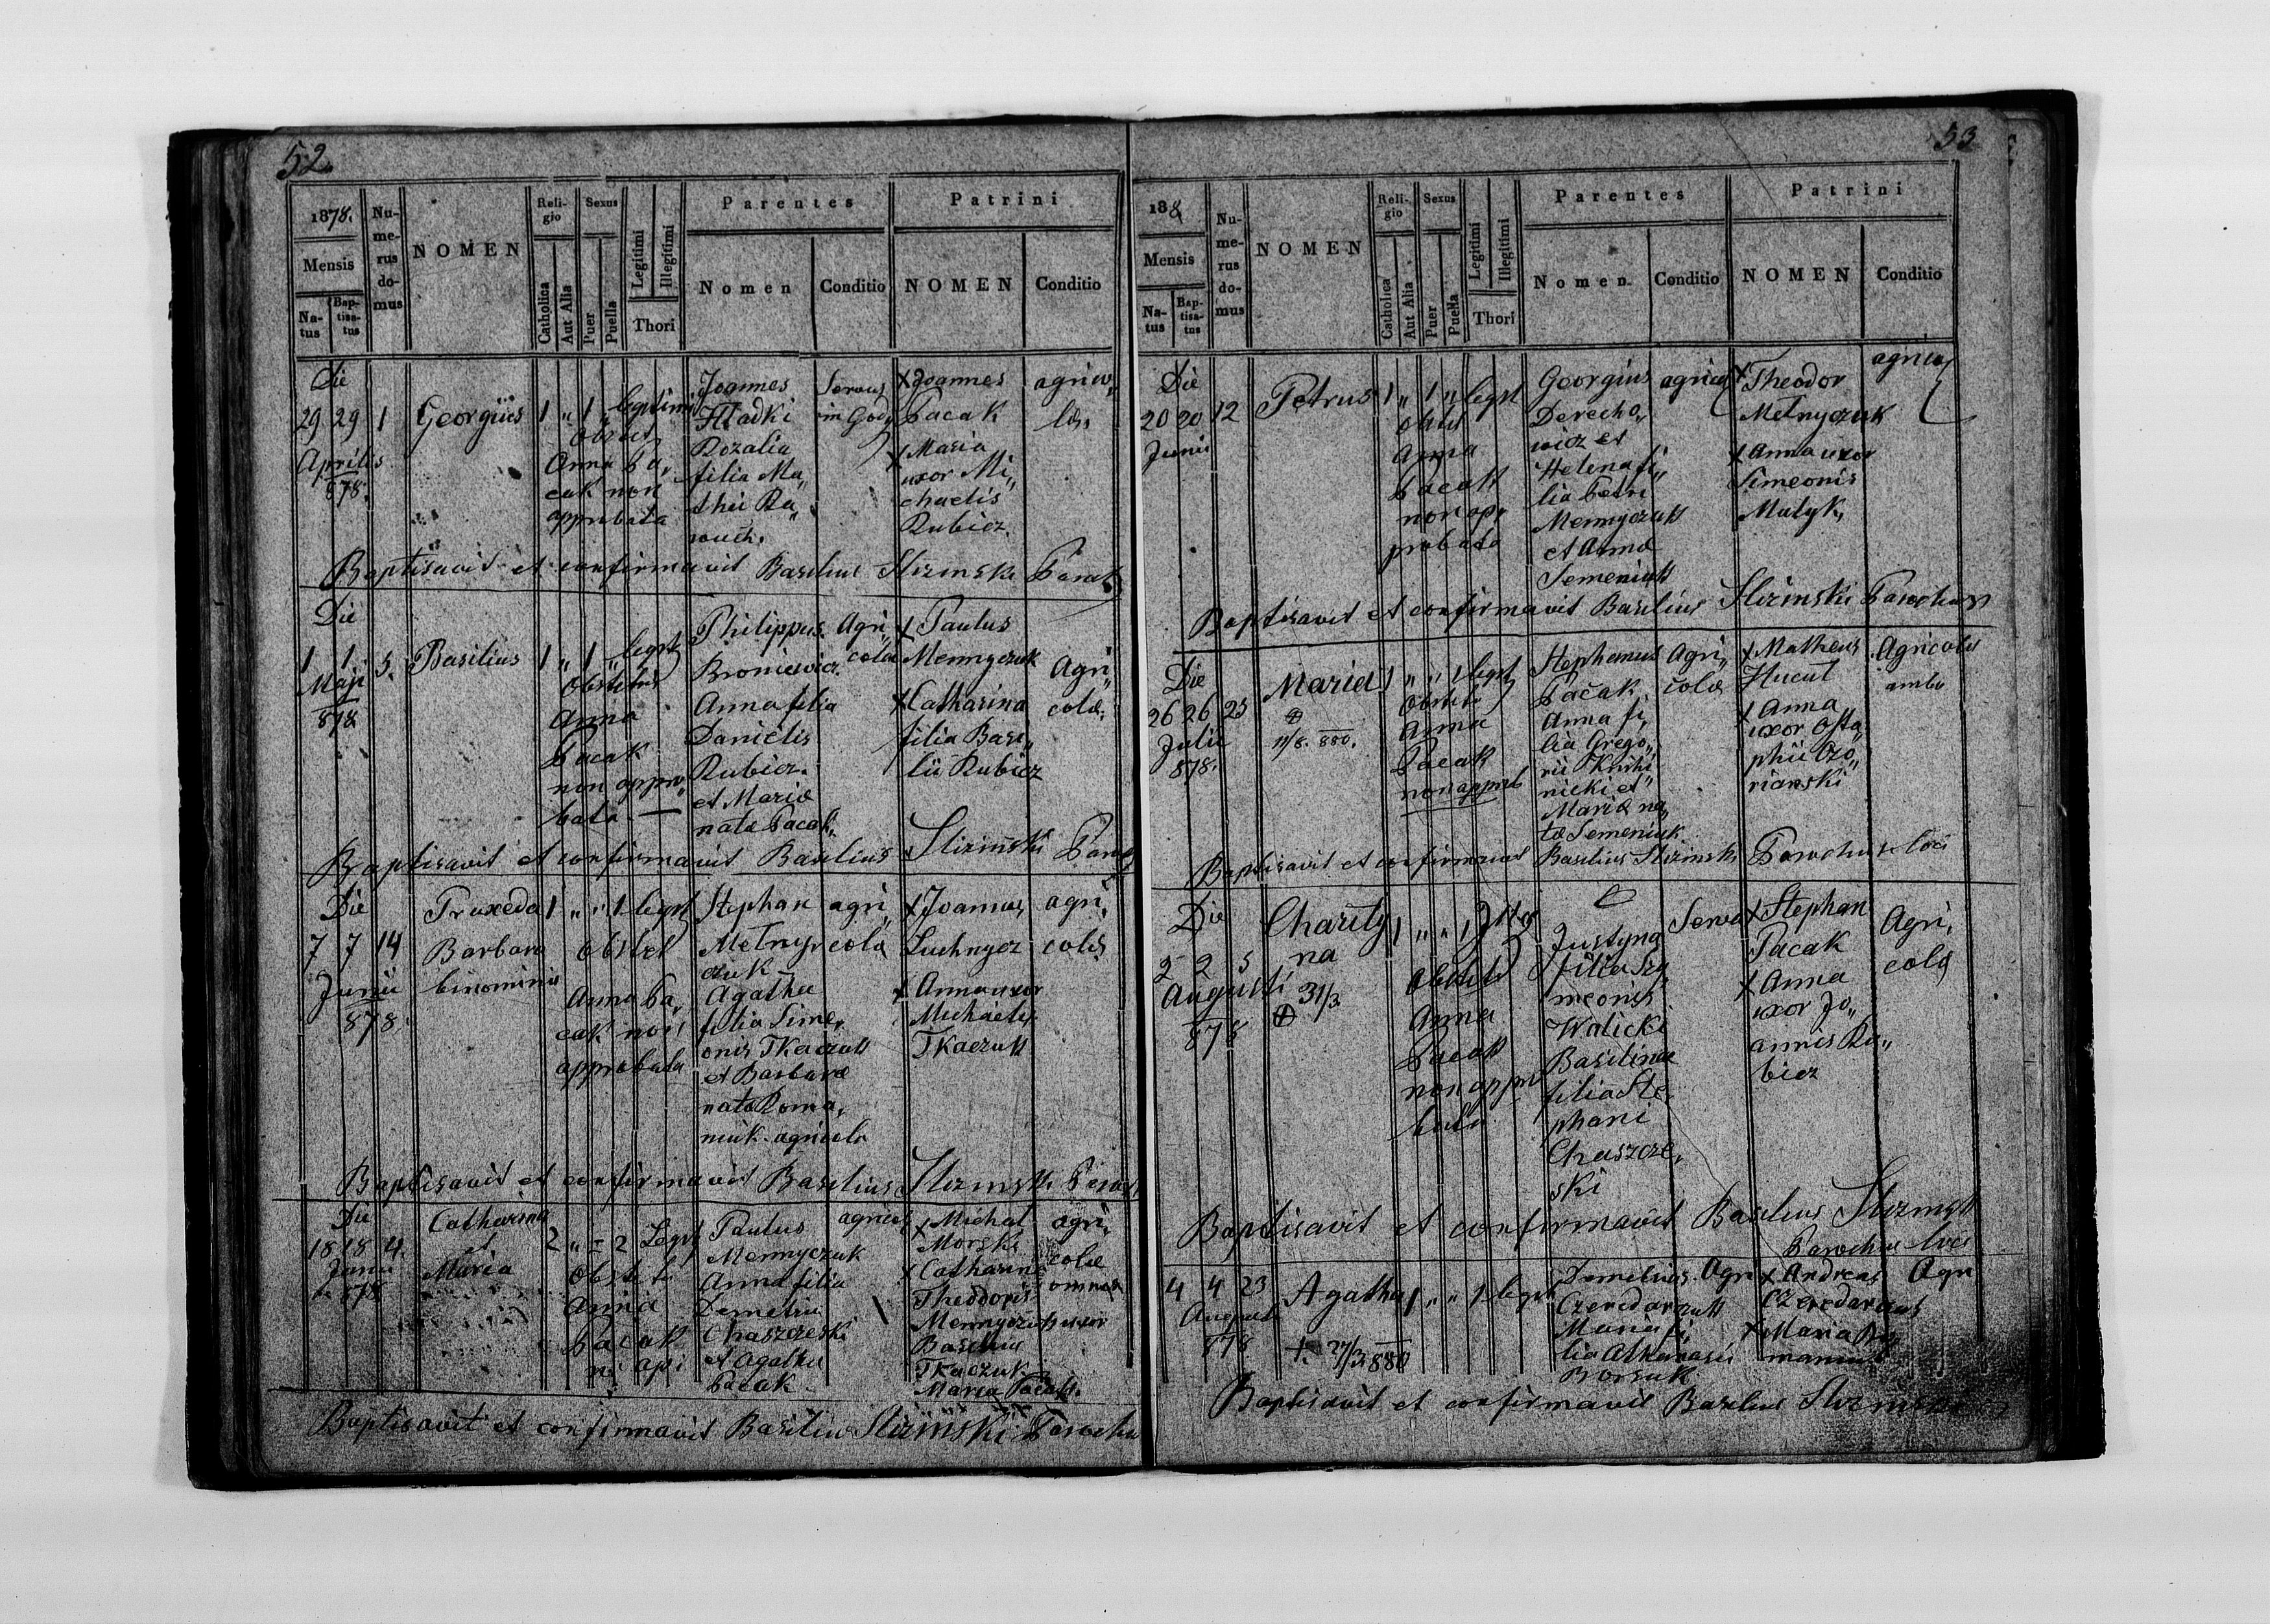 52.
1878.
Mensis
Na-
tus
Bap-
tisa-
tus
Nu-
me-
rus
do-
mus
NOMEN
Reli-
gio
Catholica
Aut Alia
Sexus
Puer
Puella
Legitimi
Illegitimi
Thori
Parentes
Nomen
Conditio
Patrini
NOMEN
Conditio
Die
29 29 1 Georgius 1 " 1 "
Aprilis
878.
Obstet
Anna Pa„
cak non
approbata
Joannes
Hladki
Rozalia
filia Ma„
thei Ra„
Servus
x Joannes
Pacak
x Maria
uxor Mi„
chaelis
Rubicz.
agrico„
Baptisavit et confirmavit Basilius Slizinski Paroch
Die
1 1 5. Basilius 1 " 1 " legit
Maji
878
Obstetrix
Anna
Pacak
non appro„
bata —
Philippus
Broniewicz.
Anna filia
Danielis
Rubicz.
et Maria
nata Pacak„
Agri„
cola
x Paulus
Mennyczuk
x Catharina
filia Basi„
lii Rubicz
Agri„
colæ.
Baptisavit et confirmavit Basilius Slizinski Paroch
Die
7 7 14
Junii
878.
Praxeda
Barbara
binominis
1 " " 1 legit
Obstet
Anna Pa„
cak non
approbata
Stephan
Melny„
czuk
Agatha
filia Sime„
onis Tkaczuk
et Barbara
nata Roma„
niuk agricola
agri„
cola
x Joannes
Luchnycz
x Anna uxor
Michaelis
Tkaczuk
agri„
colæ
Baptisavit et confirmavit Basilius Slizinski Paroch
Die
18 18 4.
Junii
878
Catharina
Maria
2 " = 2 Legit
Obstet
Anna
Pacak
Paulus
Mennyczuk
Anna filia
Demetrii
Chaszczeski
et Agatha
Pacak
agricola
x Michal
Morski
x Catharina
Theodoris
Mennyczuk uxor
Basilius
Tkaczuk
Maria Pacak.
agri„
colæ
omnes
Baptisavit et confirmavit Basilius Slizinski Parochu
53
188
Mensis
Na-
tus
Bap-
tisa-
tus
Nu-
me-
rus
do-
mus
NOMEN
Reli-
gio
Catholica
Aut Alia
Sexus
Puer
Puella
Legitimi
Illegitimi
Thori
Parentes
Nomen.
Conditio
Patrini
NOMEN
Conditio
Die
20 20 12 Petrus 1 " 1 " legit
Junii
Obstet
Anna
Pacak
non ap„
probata
Georgius
Derecho„
wicz et
Helena fi„
lia Petri
Mennyczuk
et Anna
Semeniuk
agricol
x Theodor
Melnyczuk
x Anna uxor
Simeonis
Matyk,
agricol
Baptisavit et confirmavit Basilius Slizinski Parochus
Die
26 26 23
Julii
878.
Maria
11/8. 880.
1 " " 1 legit
Obstet
Anna
Pacak
non approb
Stephanus
Pacak.
Anna fi„
lia Grego„
rii
nicki et
Maria na„
ta Semeniuk
Agri„
cola
x Matheus
Hucul
x Anna
uxor Osta„
phii Czo„
rianski
Agricolæ
ambo
Baptisavit et confirmavit Basilius Slizinski Parochus loci
Die
2 2 5
Augusti
878
Charity
na
31/3
1 " " 1
Obstet
Anna
Pacak
non appro
bata
Justyna
filia Sy
meonis
Walicki
Basilina
filia Ste„
phani
Chaszcze„
ski
Serva
x Stephan
Pacak
x Anna
uxor Jo„
annis Ru„
bicz
Agri„
colæ
Baptisavit et confirmavit Basilius Slizinsk
Parochus loci
4 4 23
Augusti
878
Agatha
†. 27/3. 880
1 " " 1 legit
Demetrius
Czeredarczuk
Maria fi„
lia Athanasii
Borsuk
Agri
x Andreas
Czeredarczuk
x Maria
Agri
Baptisavit et confirmavit Basilius Slizinski